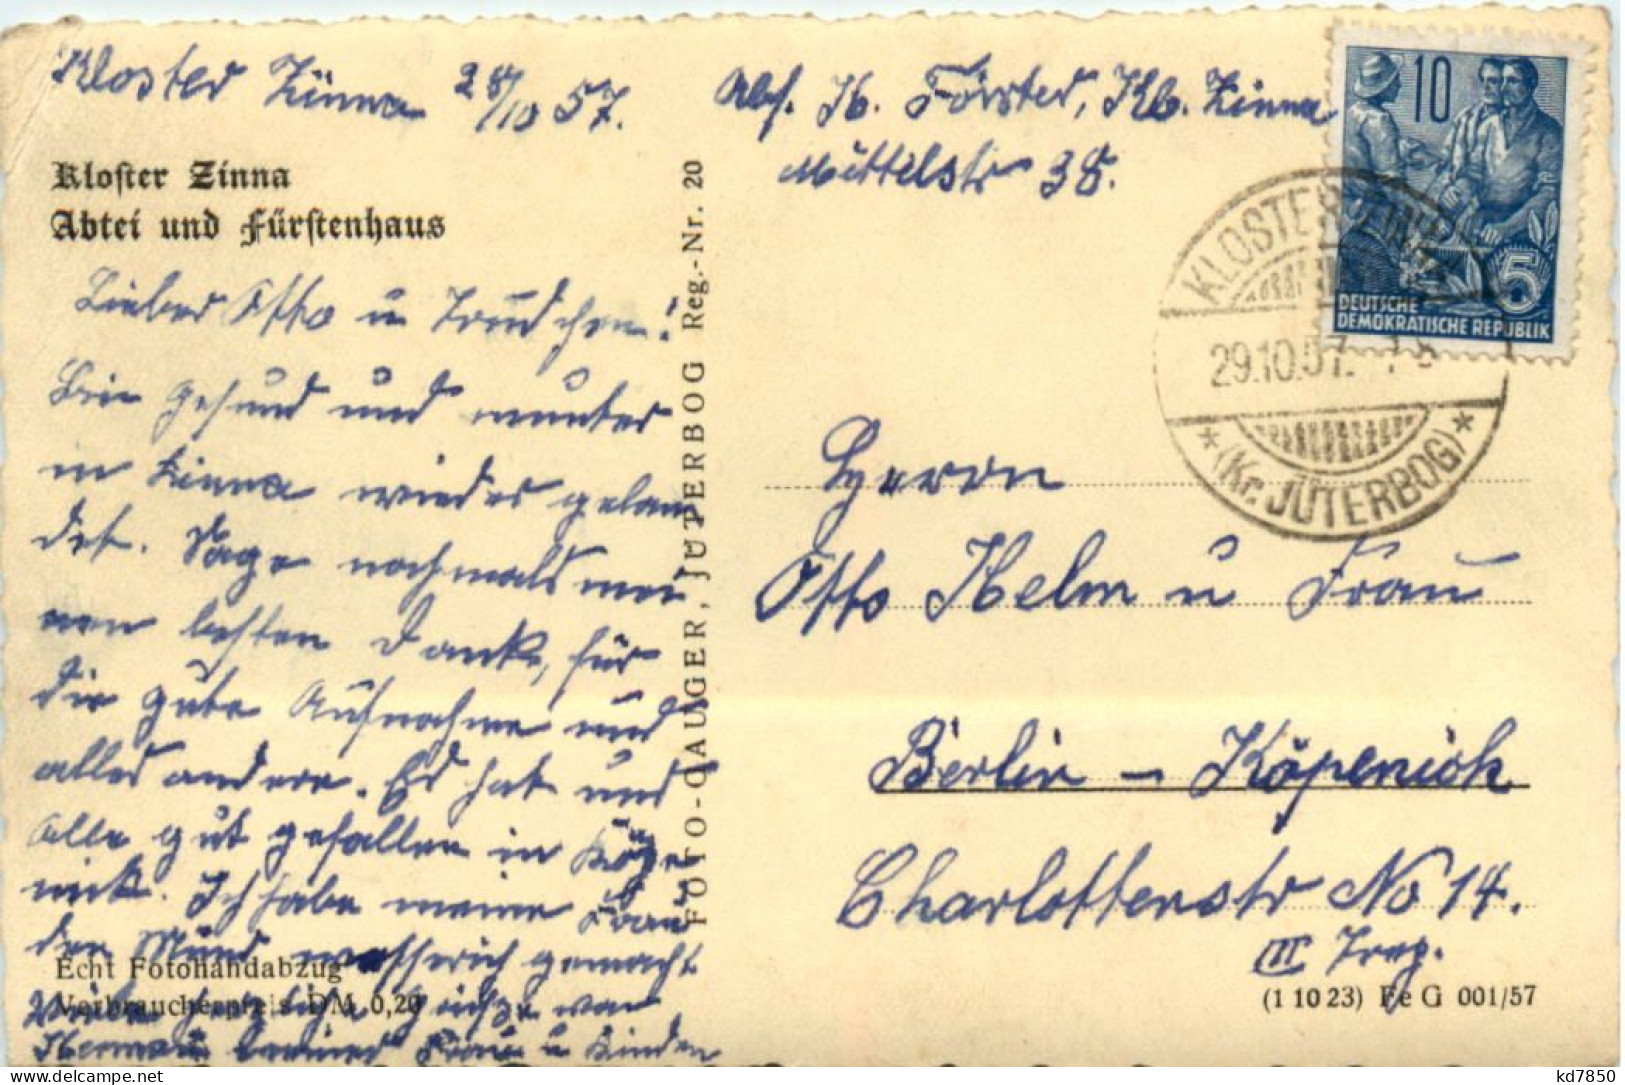 Kloster Zinna 28/10 57.
Kloster Zinna
Abtei und Fürstenhaus
Lieber Otto u Trudchen!
Bin gesund und munter
in Zinna wieder gelan
det. Sage nochmals mei
nen besten Danke, für
die gute Aufnahme und
alles andere. Es hat uns
alle gut gefallen in Köpe
nick. Ich habe meiner Frau
den Mund wasserich gemacht
Echt Fotohandabzug
Verbraucherpreis DM 0,20
herzliche Grüsse von
Hermann Frau u Kinder
FOTO-GAUGER, JÜTERBOG Reg.-Nr. 20
Abs. H. Förster, Kl. Zinna
Mittelstr 38.
10
5
DEUTSCHE
DEMOKRATISCHE REPUBLIK
KLOSTER ZINNA
29.10.57
(Kr. JÜTERBOG)
Herrn
Otto Helm u Frau
Berlin – Köpenick
Charlottenstr No 14.
III Trep.
(1 10 23) Fe G 001/57
kd7850